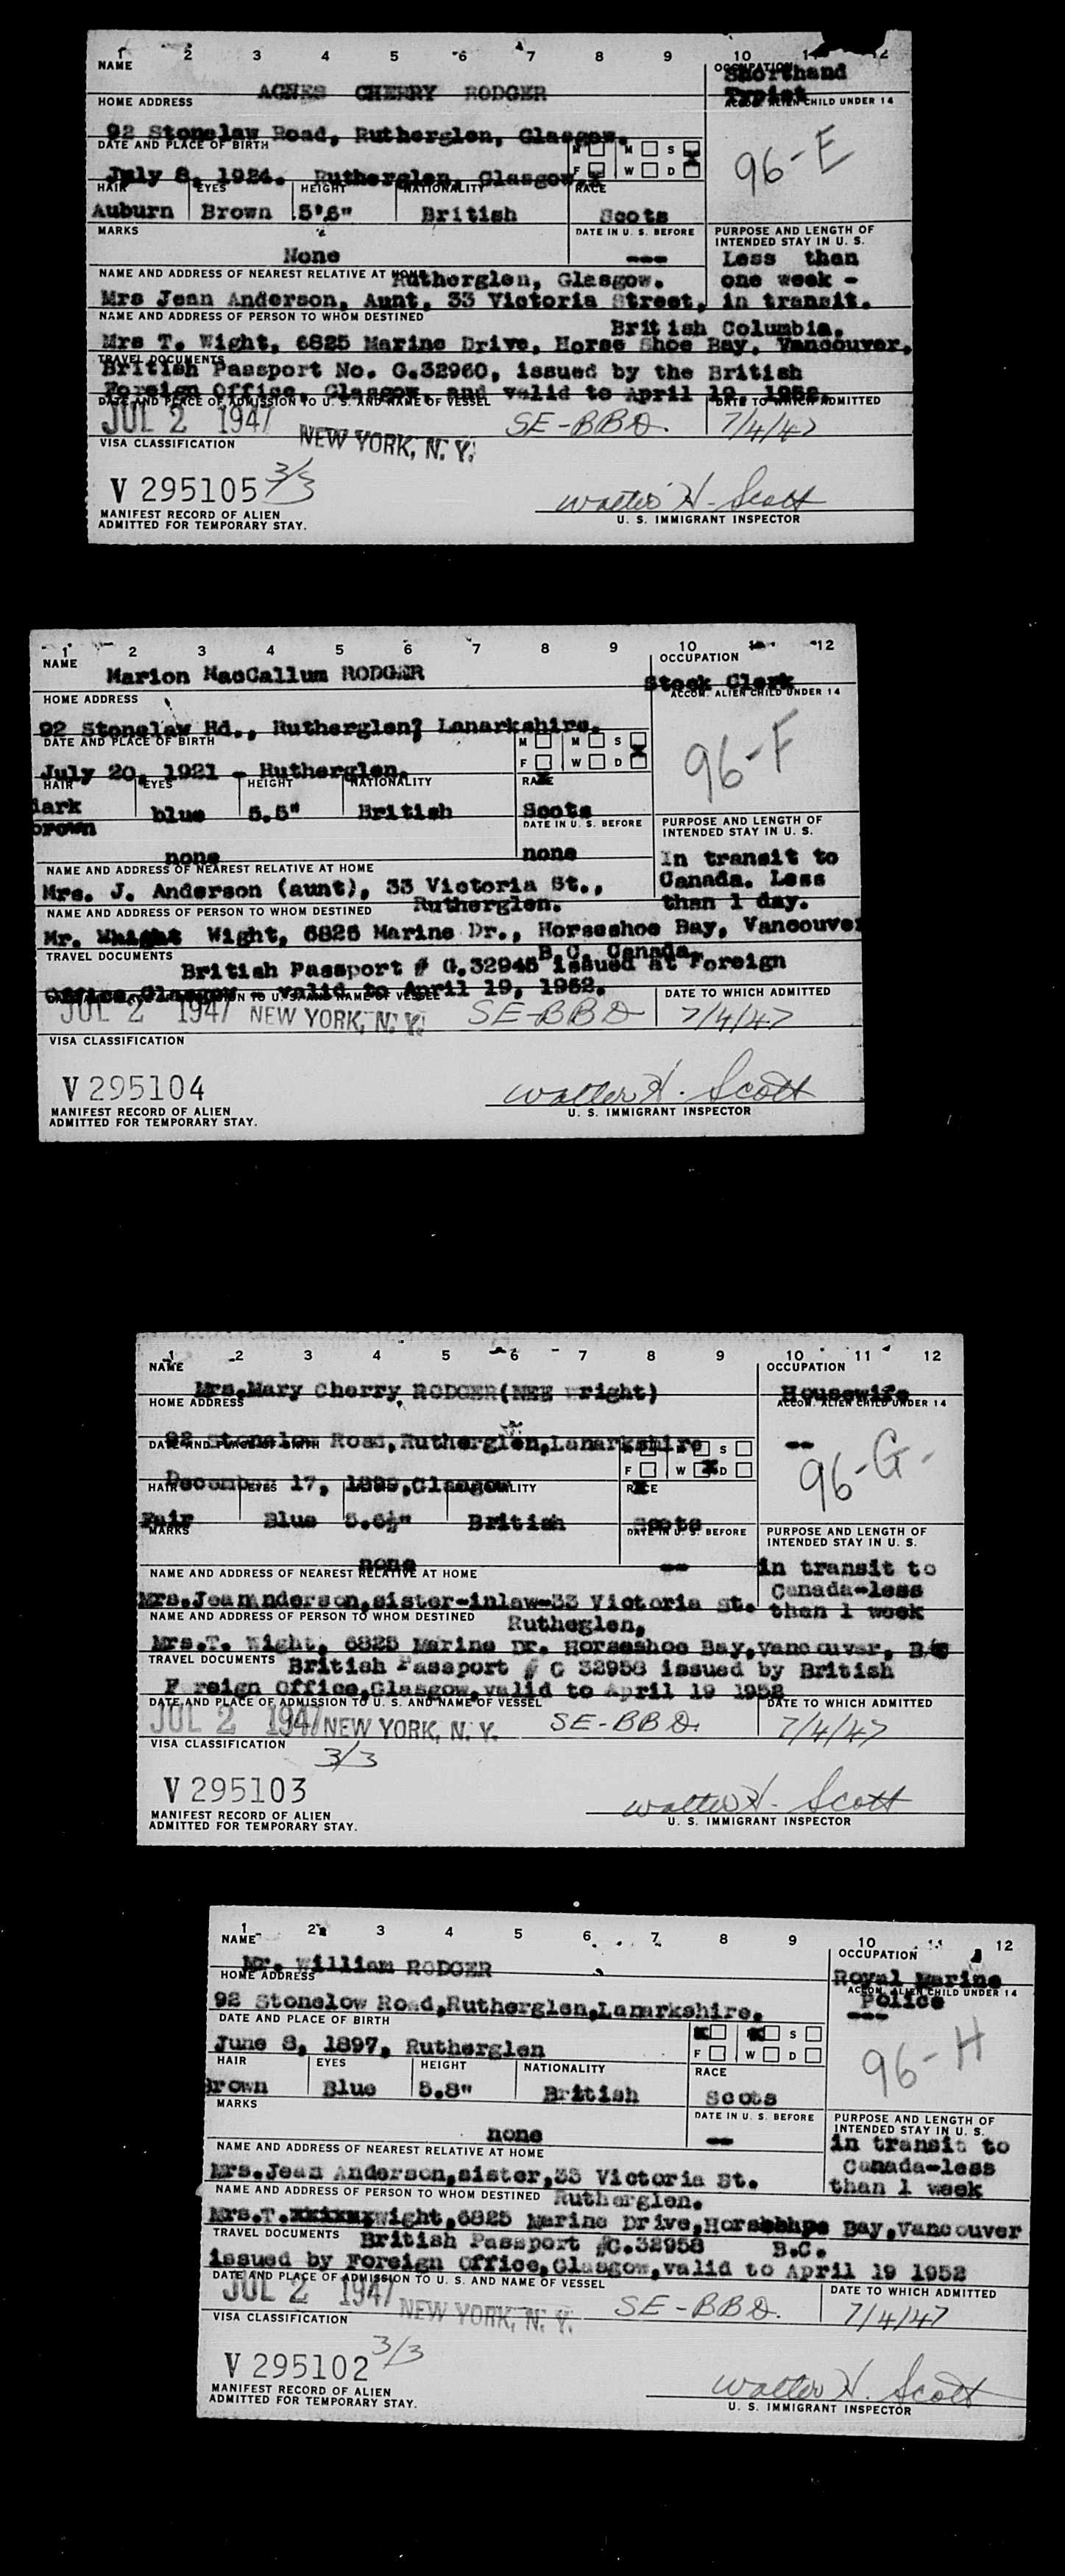 1 2 3 4 5 6 7 8 9 10 11 12
NAME OCCUPATION
AGNES CHERRY RODGER Shorthand Typist
HOME ADDRESS ACCOM. ALIEN CHILD UNDER 14
92 Stonelaw Road, Rutherglen, Glasgow.
DATE AND PLACE OF BIRTH M M S
July 8, 1924. Rutherglen, Glasgow. F W D
96-E
HAIR EYES HEIGHT NATIONALITY RACE
Auburn Brown 5'6" British Scots
MARKS DATE IN U. S. BEFORE PURPOSE AND LENGTH OF INTENDED STAY IN U. S.
None --- Less than
NAME AND ADDRESS OF NEAREST RELATIVE AT HOME Rutherglen, Glasgow. one week -
Mrs Jean Anderson, Aunt, 33 Victoria Street, in transit.
NAME AND ADDRESS OF PERSON TO WHOM DESTINED British Columbia.
Mrs T. Wight, 6825 Marine Drive, Horse Shoe Bay, Vancouver,
TRAVEL DOCUMENTS
British Passport No. G.32960, issued by the British
Foreign Office, Glasgow, and valid to April 19, 1952.
DATE AND PLACE OF ADMISSION TO U. S. AND NAME OF VESSEL DATE TO WHICH ADMITTED
JUL 2 1947 NEW YORK, N. Y. SE-BBD. 7/4/47
VISA CLASSIFICATION
3/3
V 295105 Walter H. Scott
MANIFEST RECORD OF ALIEN U. S. IMMIGRANT INSPECTOR
ADMITTED FOR TEMPORARY STAY.
1 2 3 4 5 6 7 8 9 10 12
NAME OCCUPATION
Marion MacCallum RODGER Stock Clerk
HOME ADDRESS ACCOM. ALIEN CHILD UNDER 14
92 Stonelaw Rd., Rutherglen, Lanarkshire.
DATE AND PLACE OF BIRTH M M S
July 20, 1921 - Rutherglen. F W D
96-F
HAIR EYES HEIGHT NATIONALITY RACE
dark brown blue 5.5" British Scots
DATE IN U. S. BEFORE PURPOSE AND LENGTH OF INTENDED STAY IN U. S.
none none In transit to
NAME AND ADDRESS OF NEAREST RELATIVE AT HOME Canada. Less
Mrs. J. Anderson (aunt), 33 Victoria St., than 1 day.
NAME AND ADDRESS OF PERSON TO WHOM DESTINED Rutherglen.
Mr. Wight, 6825 Marine Dr., Horseshoe Bay, Vancouver
TRAVEL DOCUMENTS B.C. Canada.
British Passport # G.32945 issued at Foreign
Office, Glasgow - valid to April 19, 1952.
DATE TO WHICH ADMITTED
JUL 2 1947 NEW YORK, N. Y. SE-BBD 7/4/47
VISA CLASSIFICATION
V 295104 Walter H. Scott
MANIFEST RECORD OF ALIEN U. S. IMMIGRANT INSPECTOR
ADMITTED FOR TEMPORARY STAY.
1 2 3 4 5 6 7 8 9 10 11 12
NAME OCCUPATION
Mrs.Mary Cherry RODGER(NEE Wright) Housewife
HOME ADDRESS ACCOM. ALIEN CHILD UNDER 14
92 Stonelaw Road,Rutherglen,Lanarkshire --
DATE AND PLACE OF BIRTH S
F W D
December 17, 1899,Glasgow 96-G-
HAIR EYES NATIONALITY RACE
Fair Blue 5.6½" British Scots
MARKS DATE IN U. S. BEFORE PURPOSE AND LENGTH OF INTENDED STAY IN U. S.
none -- in transit to
NAME AND ADDRESS OF NEAREST RELATIVE AT HOME Canada-less
Mrs.Jean Anderson,sister-inlaw-33 Victoria st. than 1 week
NAME AND ADDRESS OF PERSON TO WHOM DESTINED Rutheglen,
Mrs.T. Wight, 6825 Marine Dr. Horseshoe Bay,Vancouver, B.C
TRAVEL DOCUMENTS British Passport # G 32956 issued by British
Foreign Office,Glasgow,valid to April 19 1952
DATE AND PLACE OF ADMISSION TO U. S. AND NAME OF VESSEL DATE TO WHICH ADMITTED
JUL 2 1947 NEW YORK, N. Y. SE-BBD. 7/4/47
VISA CLASSIFICATION
3/3
V 295103 Walter H. Scott
MANIFEST RECORD OF ALIEN U. S. IMMIGRANT INSPECTOR
ADMITTED FOR TEMPORARY STAY.
1 2 3 4 5 6 7 8 9 10 11 12
NAME OCCUPATION
Mr. William RODGER Royal Marine Police
HOME ADDRESS ACCOM. ALIEN CHILD UNDER 14
92 Stonelow Road,Rutherglen,Lanarkshire. ---
DATE AND PLACE OF BIRTH S
June 8, 1897, Rutherglen F W D
96-H
HAIR EYES HEIGHT NATIONALITY RACE
Brown Blue 5.8" British Scots
MARKS DATE IN U. S. BEFORE PURPOSE AND LENGTH OF INTENDED STAY IN U. S.
none -- in transit to
NAME AND ADDRESS OF NEAREST RELATIVE AT HOME Canada-less
Mrs.Jean Anderson,sister,33 Victoria St. than 1 week
NAME AND ADDRESS OF PERSON TO WHOM DESTINED Rutherglen.
Mrs.T. Wight,6825 Marine Drive, Bay,Vancouver
TRAVEL DOCUMENTS British Passport #G.32958 B.C.
issued by Foreign Office,Glasgow,valid to April 19 1952
DATE AND PLACE OF ADMISSION TO U. S. AND NAME OF VESSEL DATE TO WHICH ADMITTED
JUL 2 1947 NEW YORK, N. Y. SE-BBD. 7/4/47
VISA CLASSIFICATION
3/3
V 295102 Walter H. Scott
MANIFEST RECORD OF ALIEN U. S. IMMIGRANT INSPECTOR
ADMITTED FOR TEMPORARY STAY.